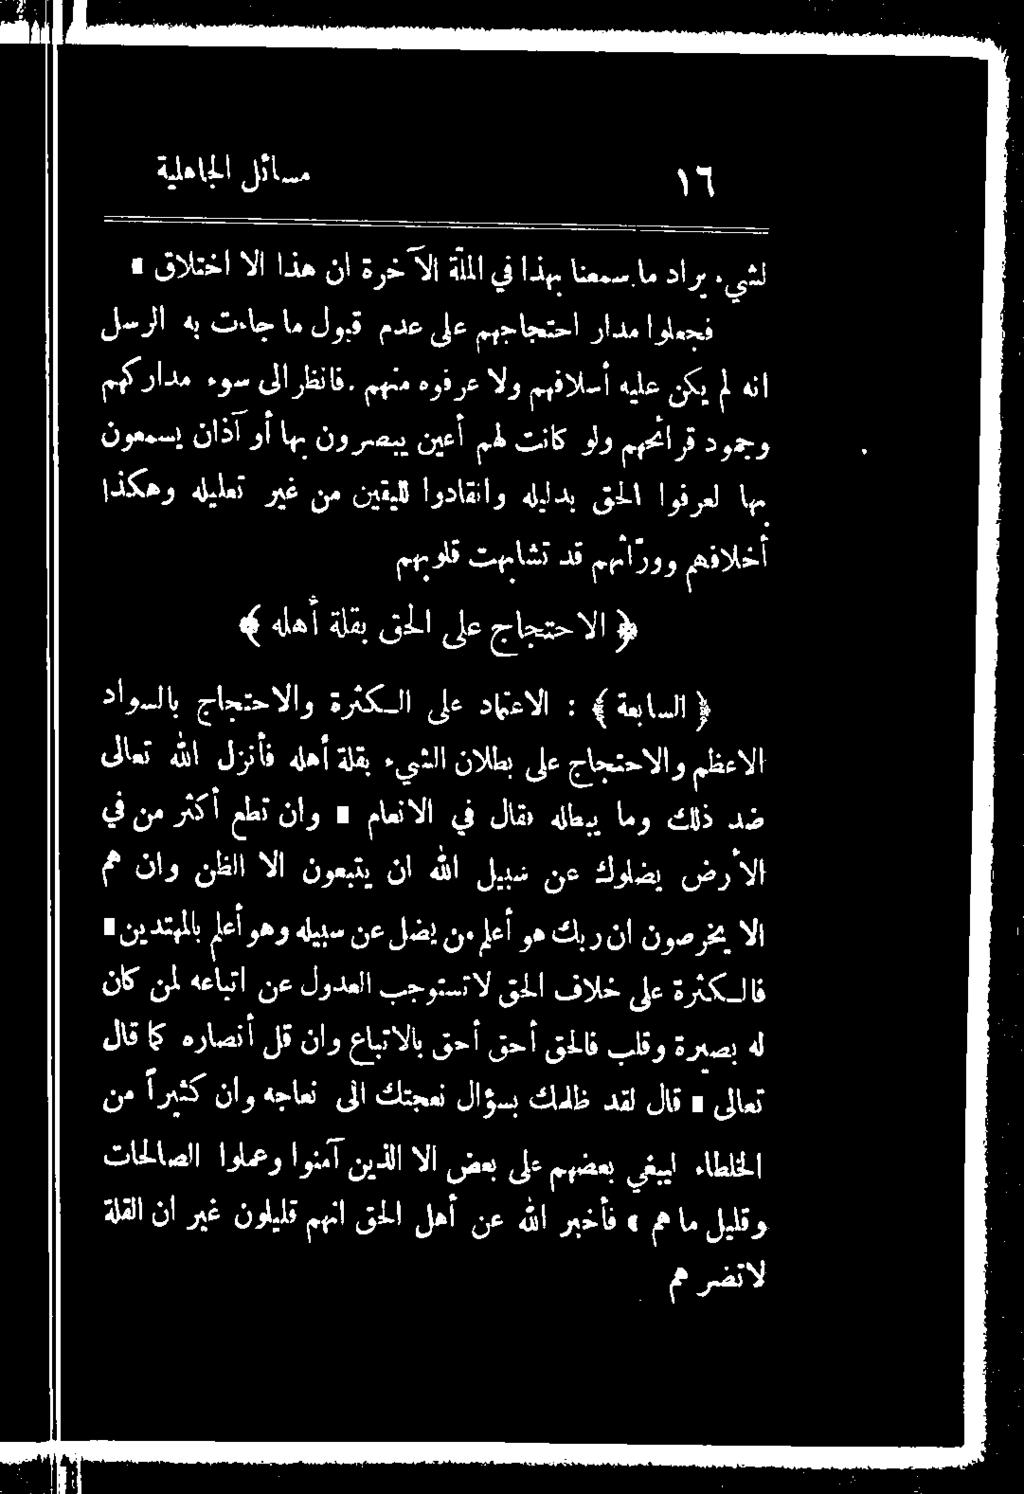 ١٦ مسائل الجاهلية
لشيء يراد ما سمعنا بهذا في الملة الآخرة ان هذا الا اختلاق ■
فجعلوا مدار احتجاجهم على عدم قبول ما جاءت به الرسل
انه لم يكن عليه أسلافهم ولا عرفوه منهم. فانظر الى سوء مداركهم
وجمود قرائحهم ولو كانت لهم أعين يبصرون بها أو آذان يسمعون
بها لعرفوا الحق بدليله وانقادوا لليقين من غير تعليله وهكذا
أخلافهم وورّاثهم قد تشابهت قلوبهم
﴿ الاحتجاج على الحق بقلة أهله ﴾
﴿ السابعة ﴾ : الاعتماد على الكثرة والاحتجاج بالسواد
الاعظم والاحتجاج على بطلان الشيء بقلة أهله فأنزل الله تعالى
ضد ذلك وما يبطله فقال في الانعام ■ وان تطع أكثر من في
الأرض يضلوك عن سبيل الله ان يتبعون الا الظن وان هم
الا يخرصون ان ربك هو أعلم من يضل عن سبيله وهو أعلم بالمهتدين ■
فالكثرة على خلاف الحق لا تستوجب العدول عن اتباعه لمن كان
له بصيرة وقلب فالحق أحق أحق بالاتباع وان قل أنصاره كما قال
تعالى ■ قال لقد ظلمك بسؤال نعجتك الى نعاجه وان كثيراً من
الخلطاء ليبغي بعضهم على بعض الا الذين آمنوا وعملوا الصالحات
وقليل ما هم » فأخبر الله عن أهل الحق انهم قليلون غير ان القلة
لا تضرهم